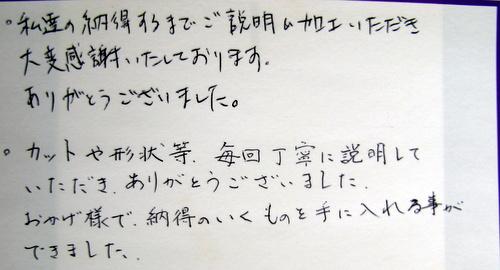 。私達の納得するまでご説明＆加工いただき
大変感謝いたしております。
ありがとうございました。
。カットや形状等、毎回丁寧に説明して
いただき、ありがとうございました。
おかげ様で、納得のいくものを手に入れる事が
できました。